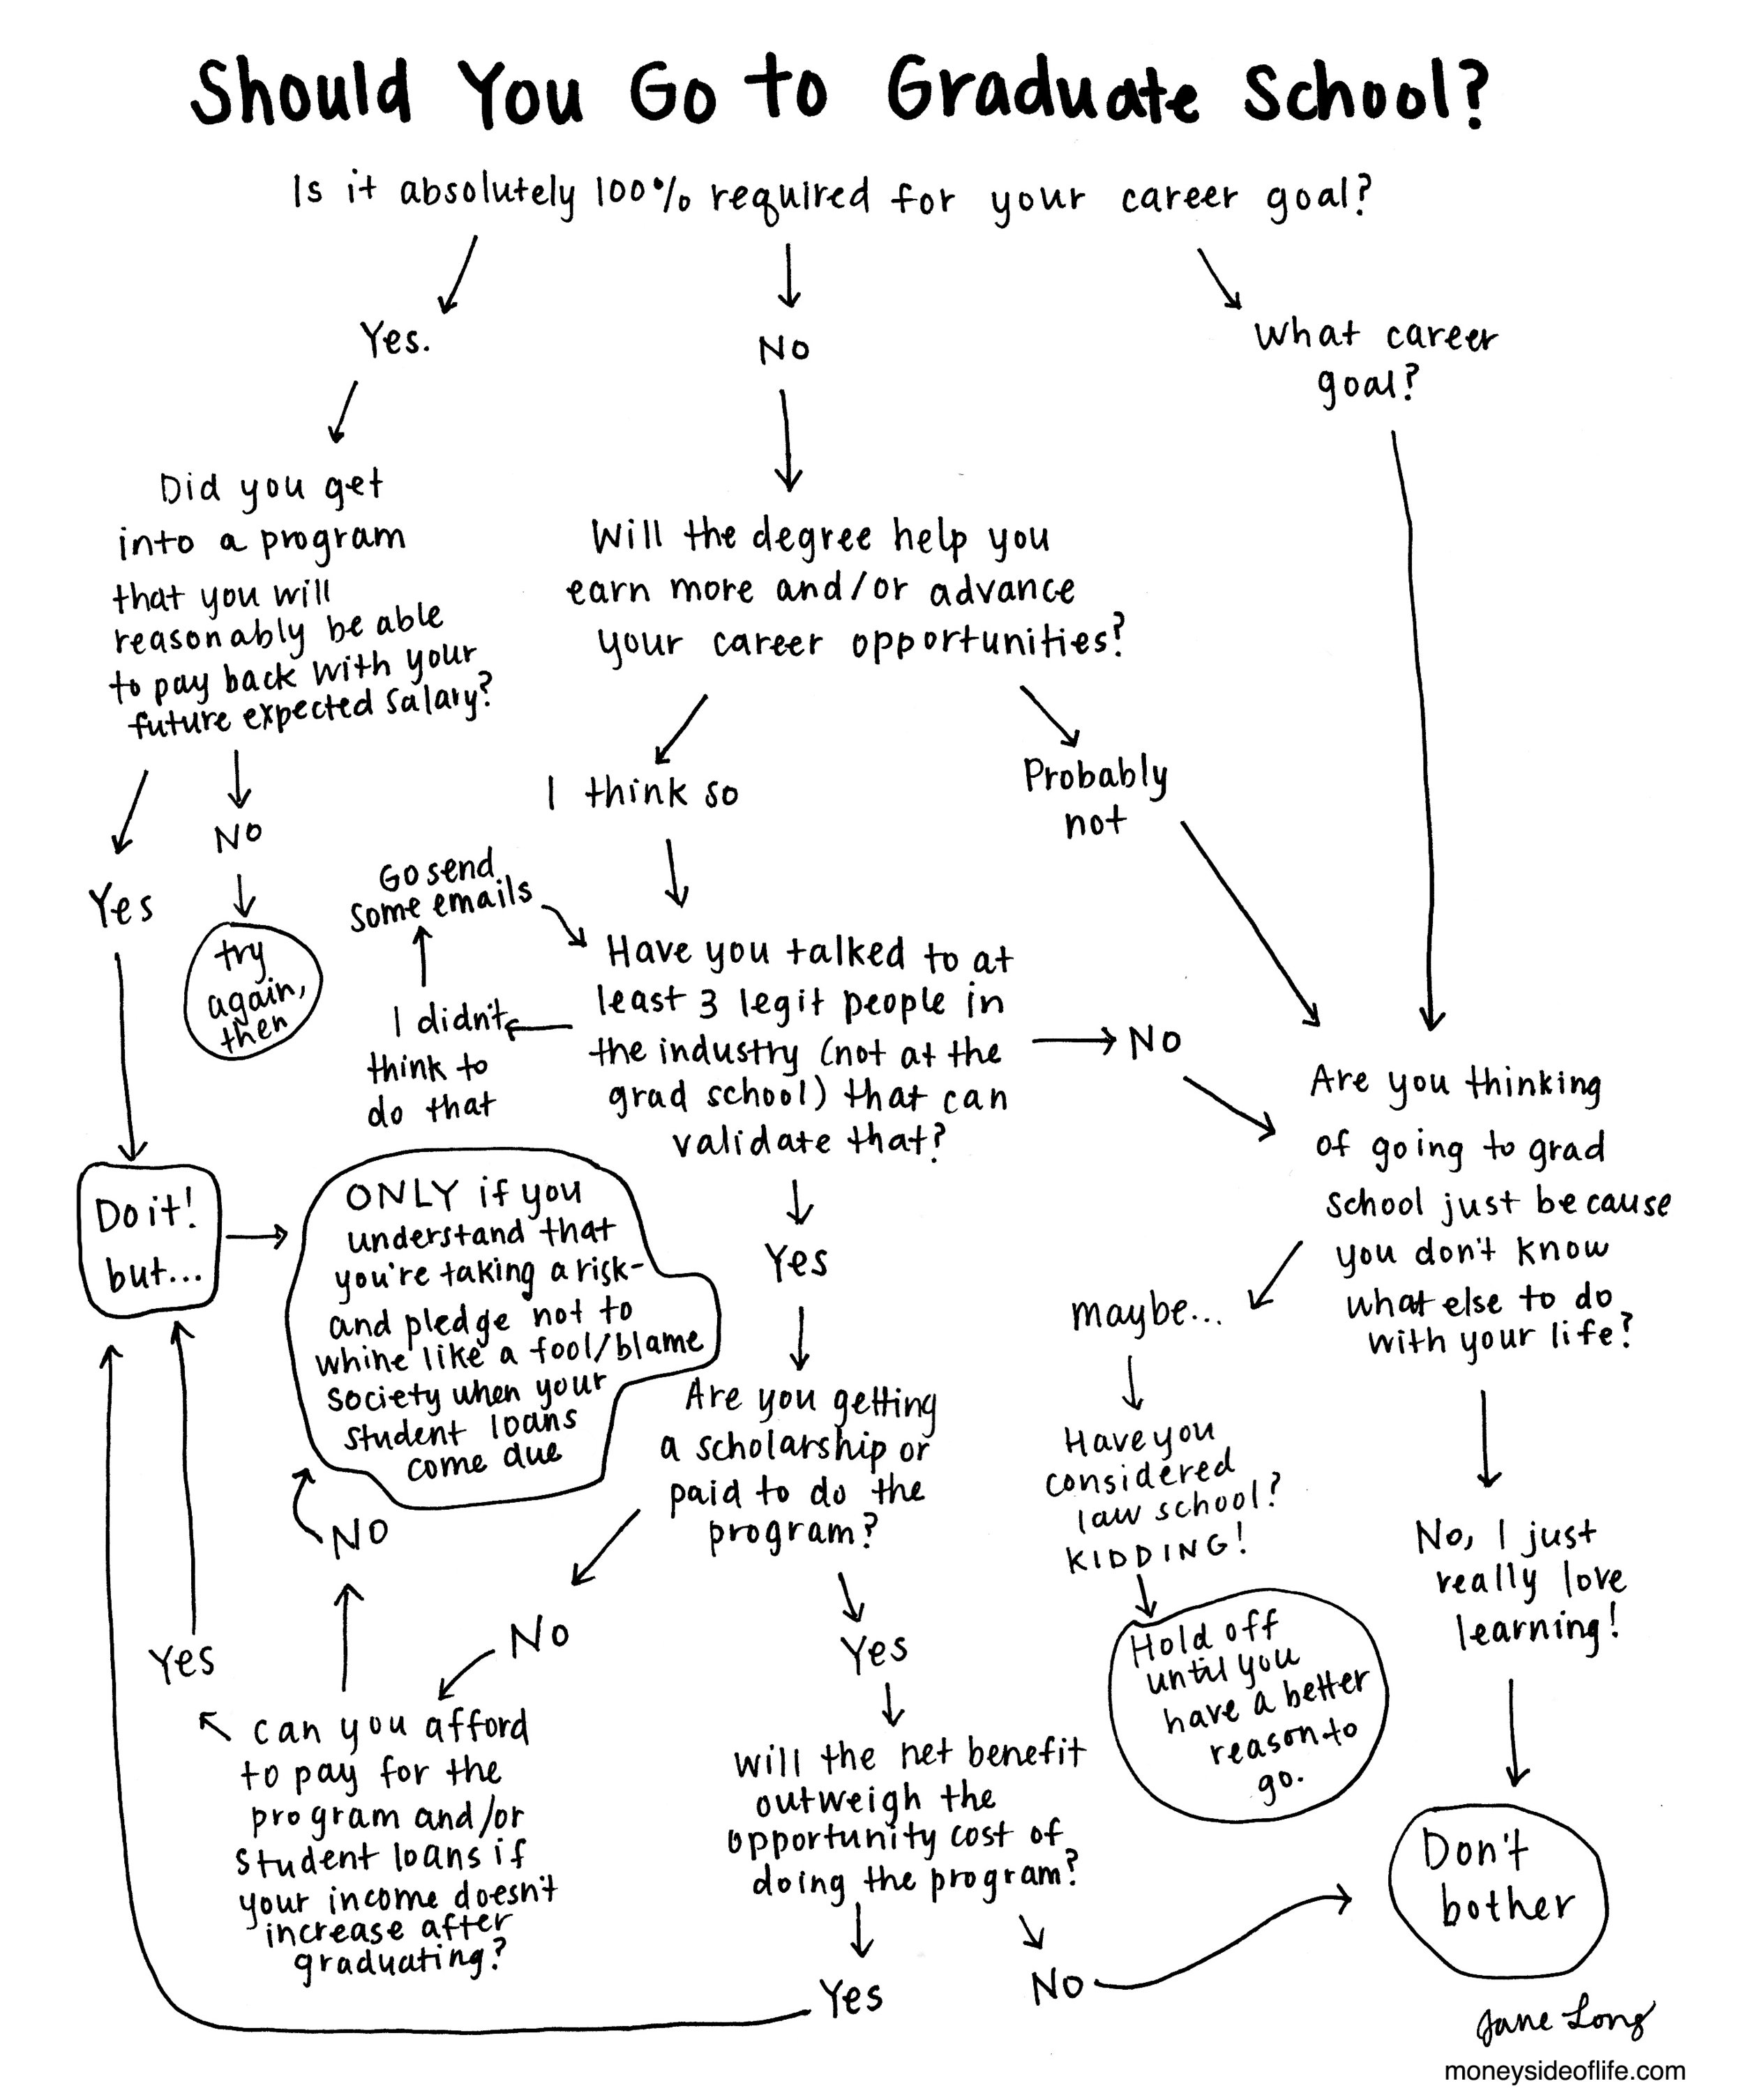 Should You Go to Graduate School?
Is it absolutely 100% required for your career goal?
Yes.
No
What career
goal?
Did you get
into a program
that you will
reasonably be able
to pay back with your
future expected salary?
Will the degree help you
earn more and/or advance
your career opportunities?
Yes
No
try
again,
then
I think so
Probably
not
Go send
some emails
I didn't
think to
do that
Have you talked to at
least 3 legit people in
the industry (not at the
grad school) that can
validate that?
No
Are you thinking
of going to grad
school just because
you don't know
what else to do
with your life?
Do it!
but...
ONLY if you
understand that
you're taking a risk-
and pledge not to
whine like a fool/blame
society when your
student loans
come due
Yes
Are you getting
a scholarship or
paid to do the
program?
maybe...
Have you
considered
law school?
KIDDING!
Hold off
until you
have a better
reason to
go.
No, I just
really love
learning!
No
No
Yes
Yes
can you afford
to pay for the
program and/or
student loans if
your income doesn't
increase after
graduating?
will the net benefit
outweigh the
opportunity cost of
doing the program?
Yes
No
Don't
bother
Jane Long
moneysideoflife.com